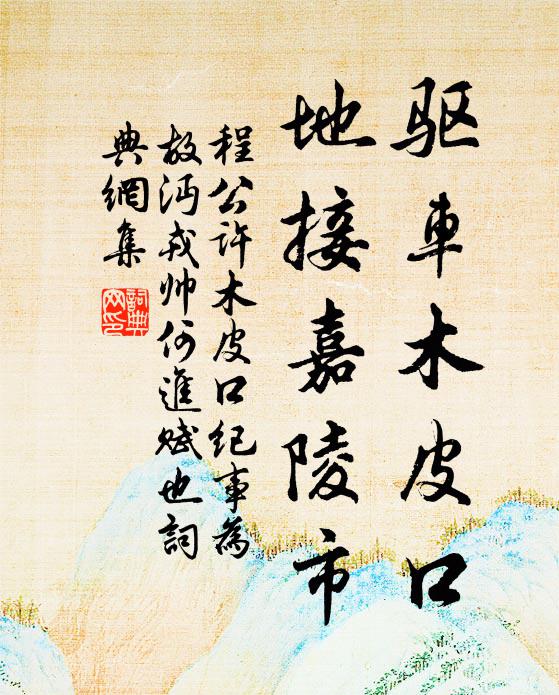 驱車木皮口
地接嘉陵市
程公许木皮口纪事為
故沔戎帅何進赋也詞
典網集
詞典
网印